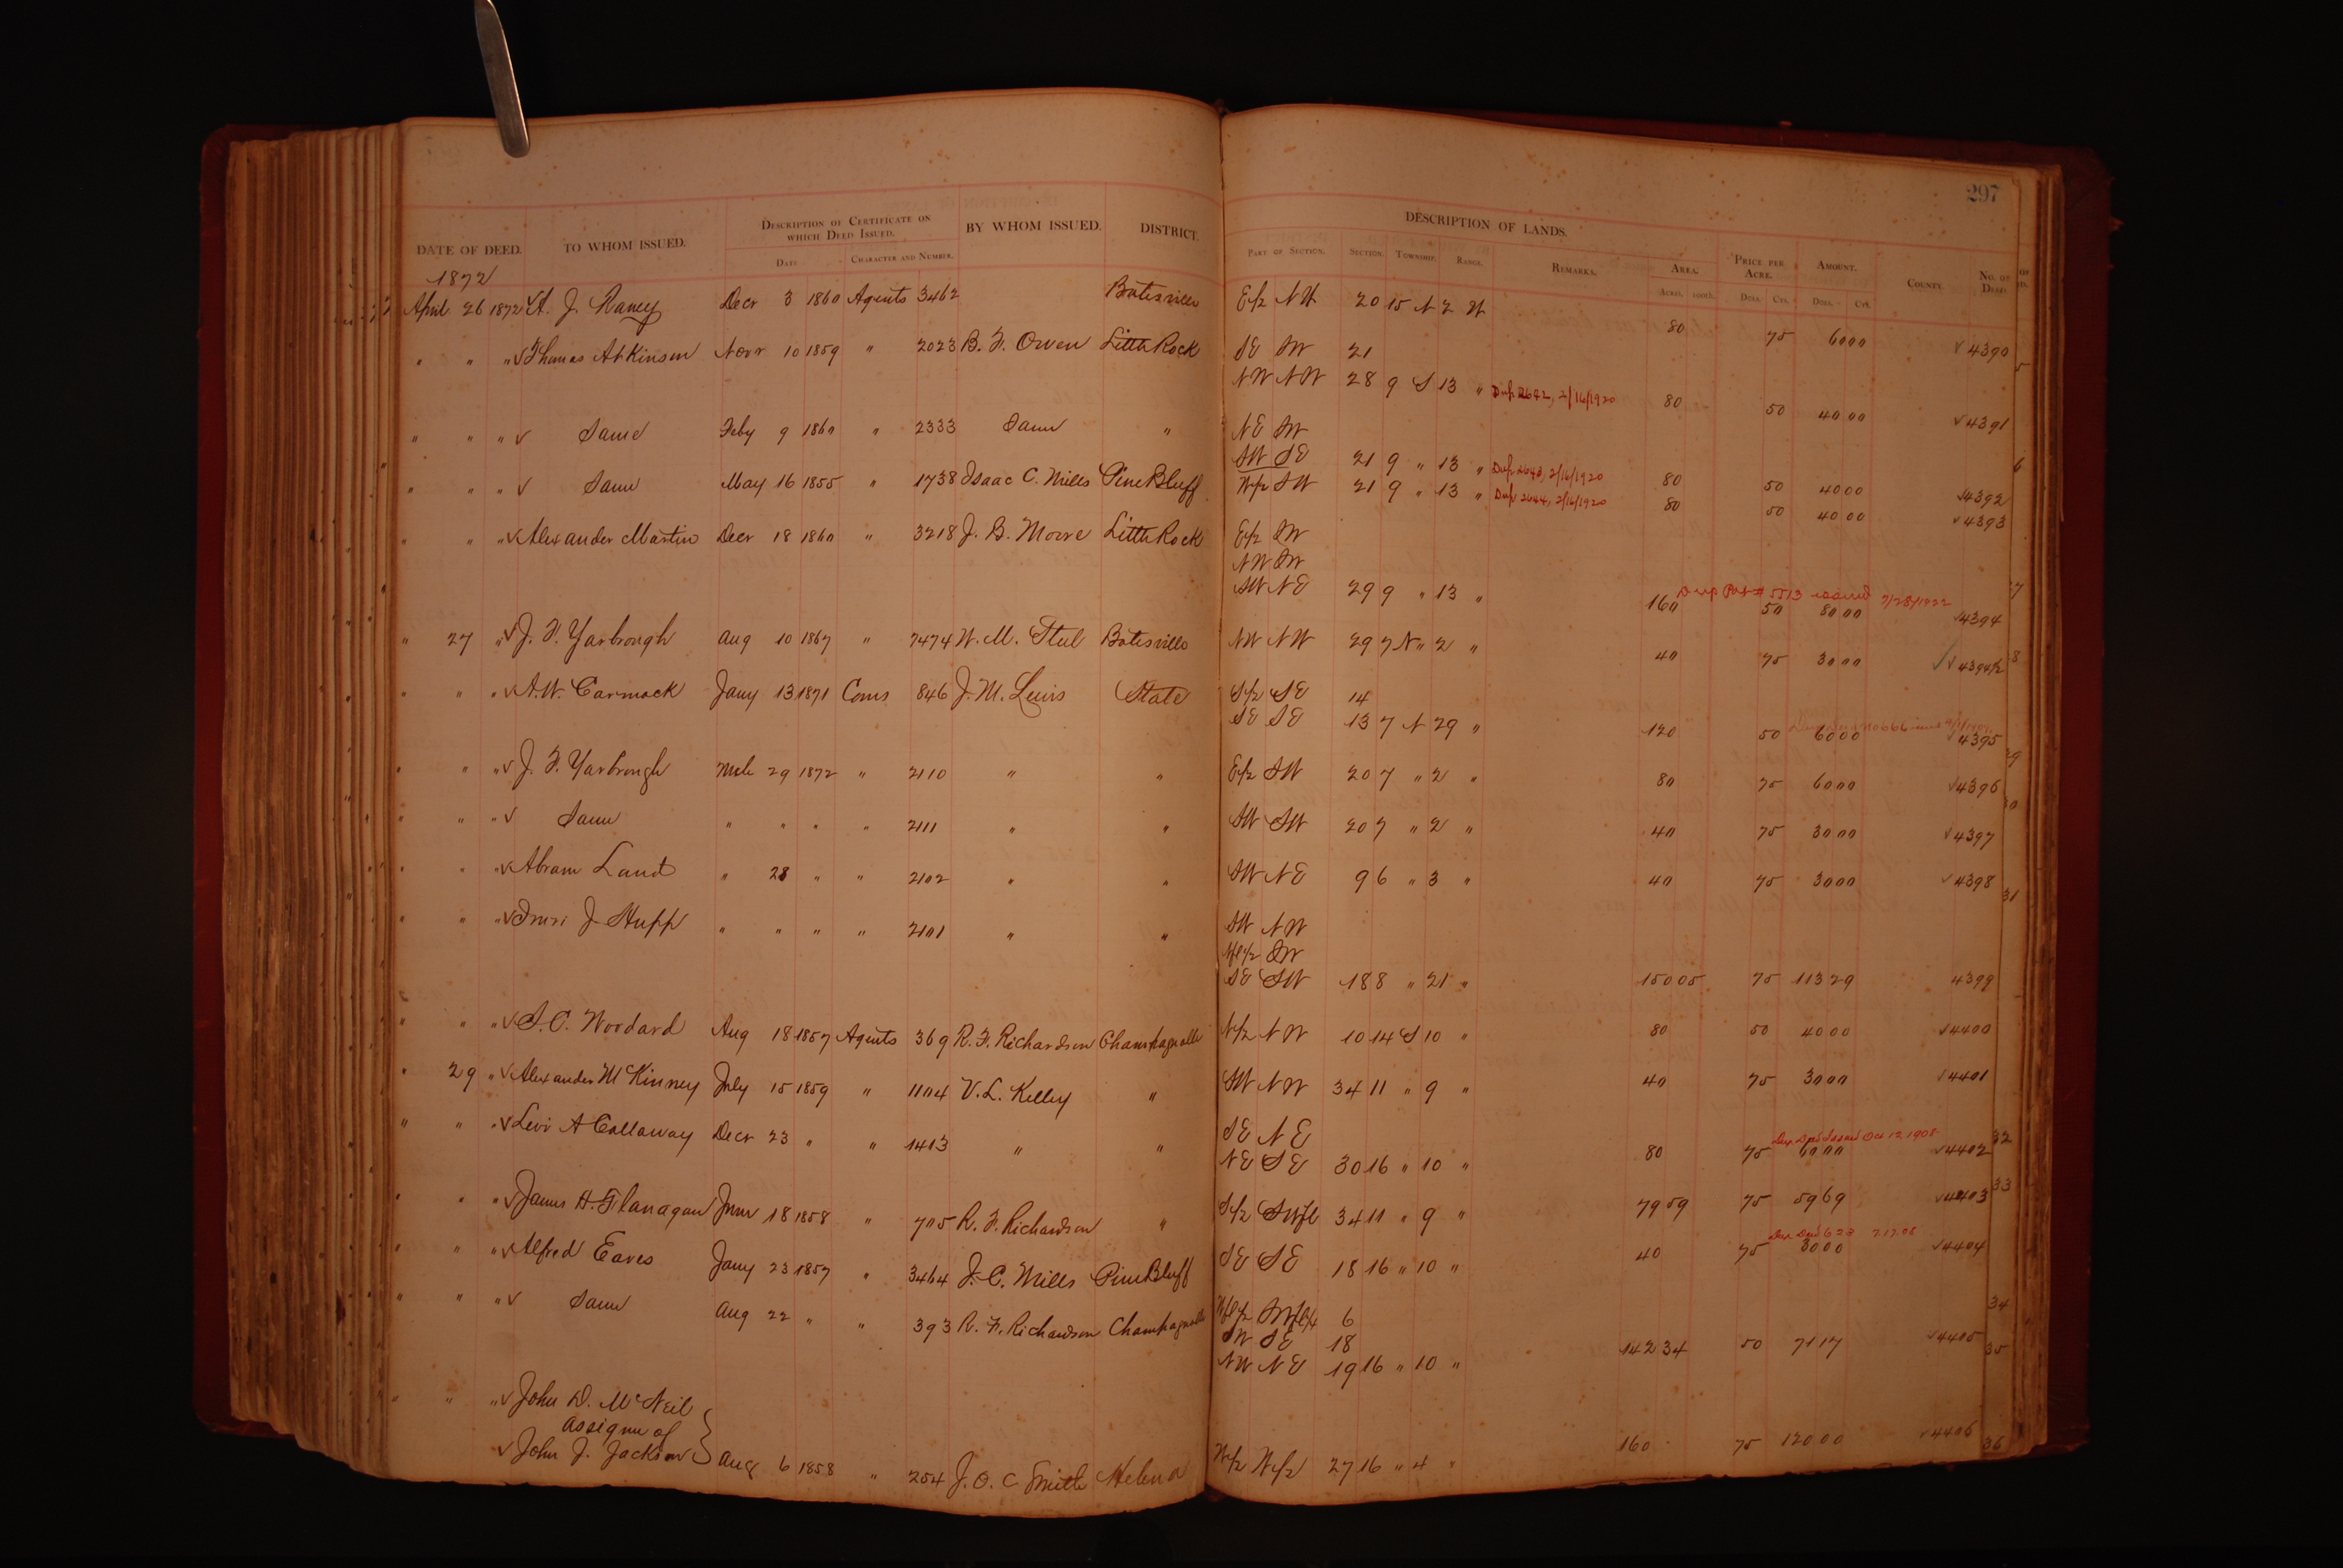 297
DESCRIPTION OF CERTIFICATE ON WHICH DEED ISSUED.
DATE OF DEED. TO WHOM ISSUED. DATE CHARACTER AND NUMBER. BY WHOM ISSUED. DISTRICT.
DESCRIPTION OF LANDS.
PART OF SECTION. SECTION. TOWNSHIP. RANGE. REMARKS. AREA. ACRES. 100ths. PRICE PER ACRE. DOLLS. CTS. AMOUNT. DOLLS. CTS. COUNTY NO. OF DEED
1872
April 26 1872 √ A. J. Raney Decr 3 1860 Agents 3462 Batesville E/2 NW 20 15 N 2 W 80 75 60 00 √ 4390
" " " √ Thomas Atkinson Novr 10 1859 " 2023 B. F. Owen Little Rock SE SW 21
NW NW 28 9 S 13 " Dup. 2642, 2/16/1920 80 50 40 00 √ 4391
" " " √ Same Feby 9 1860 " 2333 Same " NE SW
SW SE 21 9 " 13 " Dup. 2643, 2/16/1920 80 50 40 00 √ 4392
" " " √ Same May 16 1855 " 1738 Isaac C. Mills Pine Bluff W/2 SW 21 9 " 13 " Dup. 2644, 2/16/1920 80 50 40 00 √ 4393
" " " √ Alexander Martin Decr 18 1860 " 3218 J. B. Moore Little Rock E/2 SW
NW SW
SW NE 29 9 " 13 " 160 50 80 00 √ 4394
" 27 " √ J. F. Yarbrough Aug 10 1867 " 7474 W. M. Steel Batesville NW NW 29 7 N " 2 " 40 75 30 00 √ √ 4394 1/2
" " " √ A. W. Carmack Jany 13 1871 Coms 846 J. M. Lewis State S/2 SE 14
SE SE 13 7 N 29 " 120 50 60 00 √ 4395
" " " √ J. F. Yarbrough Mch 29 1872 " 2110 " " E/2 SW 20 7 " 2 " 80 75 60 00 √ 4396
" " " √ Same " " " " 2111 " " SW SW 20 7 " 2 " 40 75 30 00 √ 4397
" " " √ Abram Land " 28 " " 2102 " " SW NE 9 6 " 3 " 40 75 30 00 √ 4398
" " " √ J Hupp " " " " 2101 " " SW NW
SW
SE SW 18 8 " 21 " 150 05 75 113 29 4399
" " " √ S. C. Woodard Aug 18 1857 Agents 369 R. F. Richardson Champagnolle N/2 NW 10 14 S 10 " 80 50 40 00 √ 4400
" 29 " √ Alexander McKinney July 15 1859 " 1104 V. L. Kelley " SW NW 34 11 " 9 " 40 75 30 00 √ 4401
" " " √ Levi A Callaway Decr 23 " " 1413 " " SE NE
NE SE 30 16 " 10 " 80 75 Dup Deed Issued Oct 12 1908 60 00 √ 4402
" " " √ James H. Flanagan June 18 1858 " 705 R. F. Richardson " S/2 SWfl 34 11 " 9 " 79 59 75 59 69 √ 4403
" " " √ Alfred Eaves Jany 23 1857 " 3464 J. C. Mills Pine Bluff SE SE 18 16 " 10 " 40 75 Dup Deed 623 30 00 √ 4404
" " " √ Same Aug 22 " " 393 R. F. Richardson Champagnolle Wfl/2 SWfl/4 6
SW SE 18
NW NE 19 16 " 10 " 142 34 50 71 17 √ 4405
" " " √ John D. McNeil
assignee of
√ John J. Jackson Aug 6 1858 " 254 J. O. C Smith Helena W/2 W/2 27 16 " 4 " 160 75 120 00 √ 4406